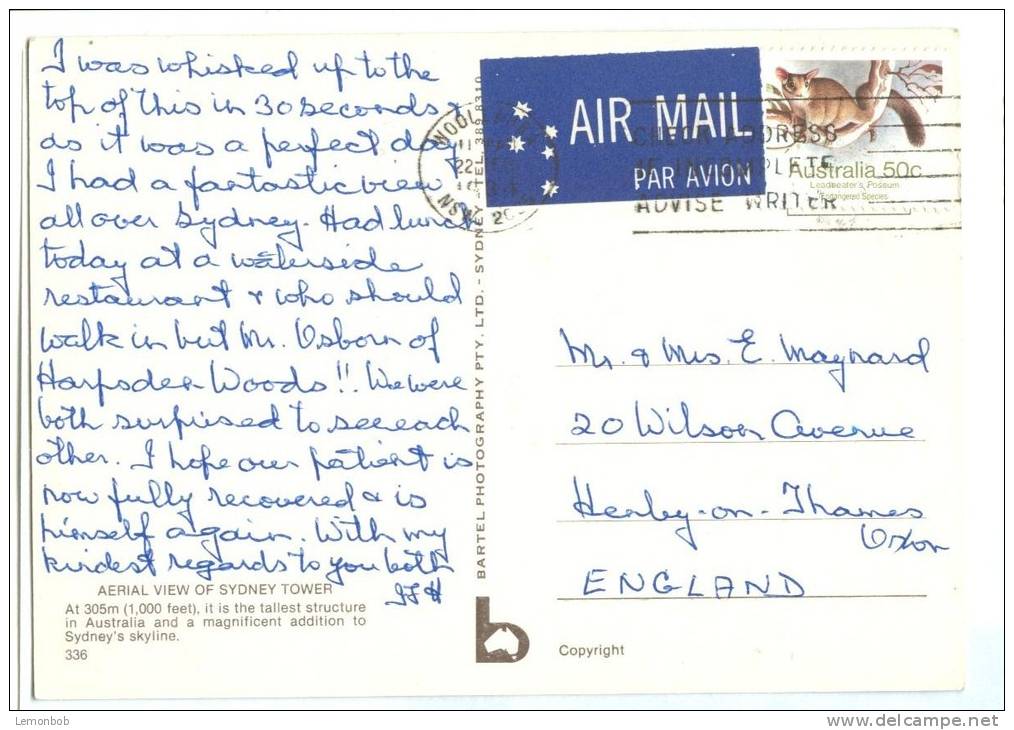 I was whisked up to the
top of this in 30 seconds &
as it was a perfect day
I had a fantastic view
all over Sydney. Had lunch
today at a waterside
restaurant & who should
walk in but Mr. Osborn of
Harpsden Woods!! We were
both surprised to see each
other. I hope our patient is
now fully recovered & is
himself again. With my
kindest regards to you both
AERIAL VIEW OF SYDNEY TOWER
At 305m (1,000 feet), it is the tallest structure
in Australia and a magnificent addition to
Sydney's skyline.
336
BARTEL PHOTOGRAPHY PTY. LTD. - SYDNEY - TEL. 389 8310
b
AIR MAIL
PAR AVION
CHECK ADDRESS
IF INCOMPLETE
ADVISE WRITER
Australia 50c
Leadbeater's Possum
Endangered Species
Mr. & Mrs. E. Maynard
20 Wilson Avenue
Henley-on-Thames
Oxon
ENGLAND
Copyright
Lemonbob
www.delcampe.net